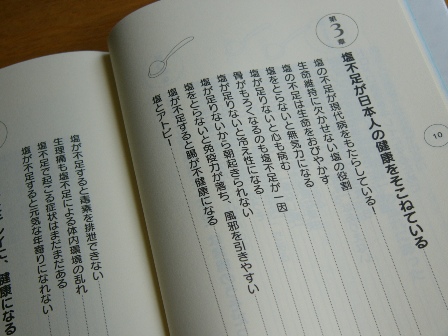 第3章
塩不足が日本人の健康をそこねている
塩の不足が現代病をもたらしている!
生命維持に欠かせない塩の役割
塩の不足は生命をおびやかす
塩をとらないと無気力になる
塩が足りないと心も病む
骨がもろくなるのも塩不足が一因
塩が足りないと冷え性になる
塩が足りないから朝起きられない
塩をとらないと免疫力が落ち、風邪を引きやすい
塩が不足すると腸が不健康になる
塩とアトピー
塩が不足すると毒素を排泄できない
生理痛も塩不足による体内環境の乱れ
塩不足で起こる症状はまだまだある
塩が不足すると元気な年寄りになれない
健康になる